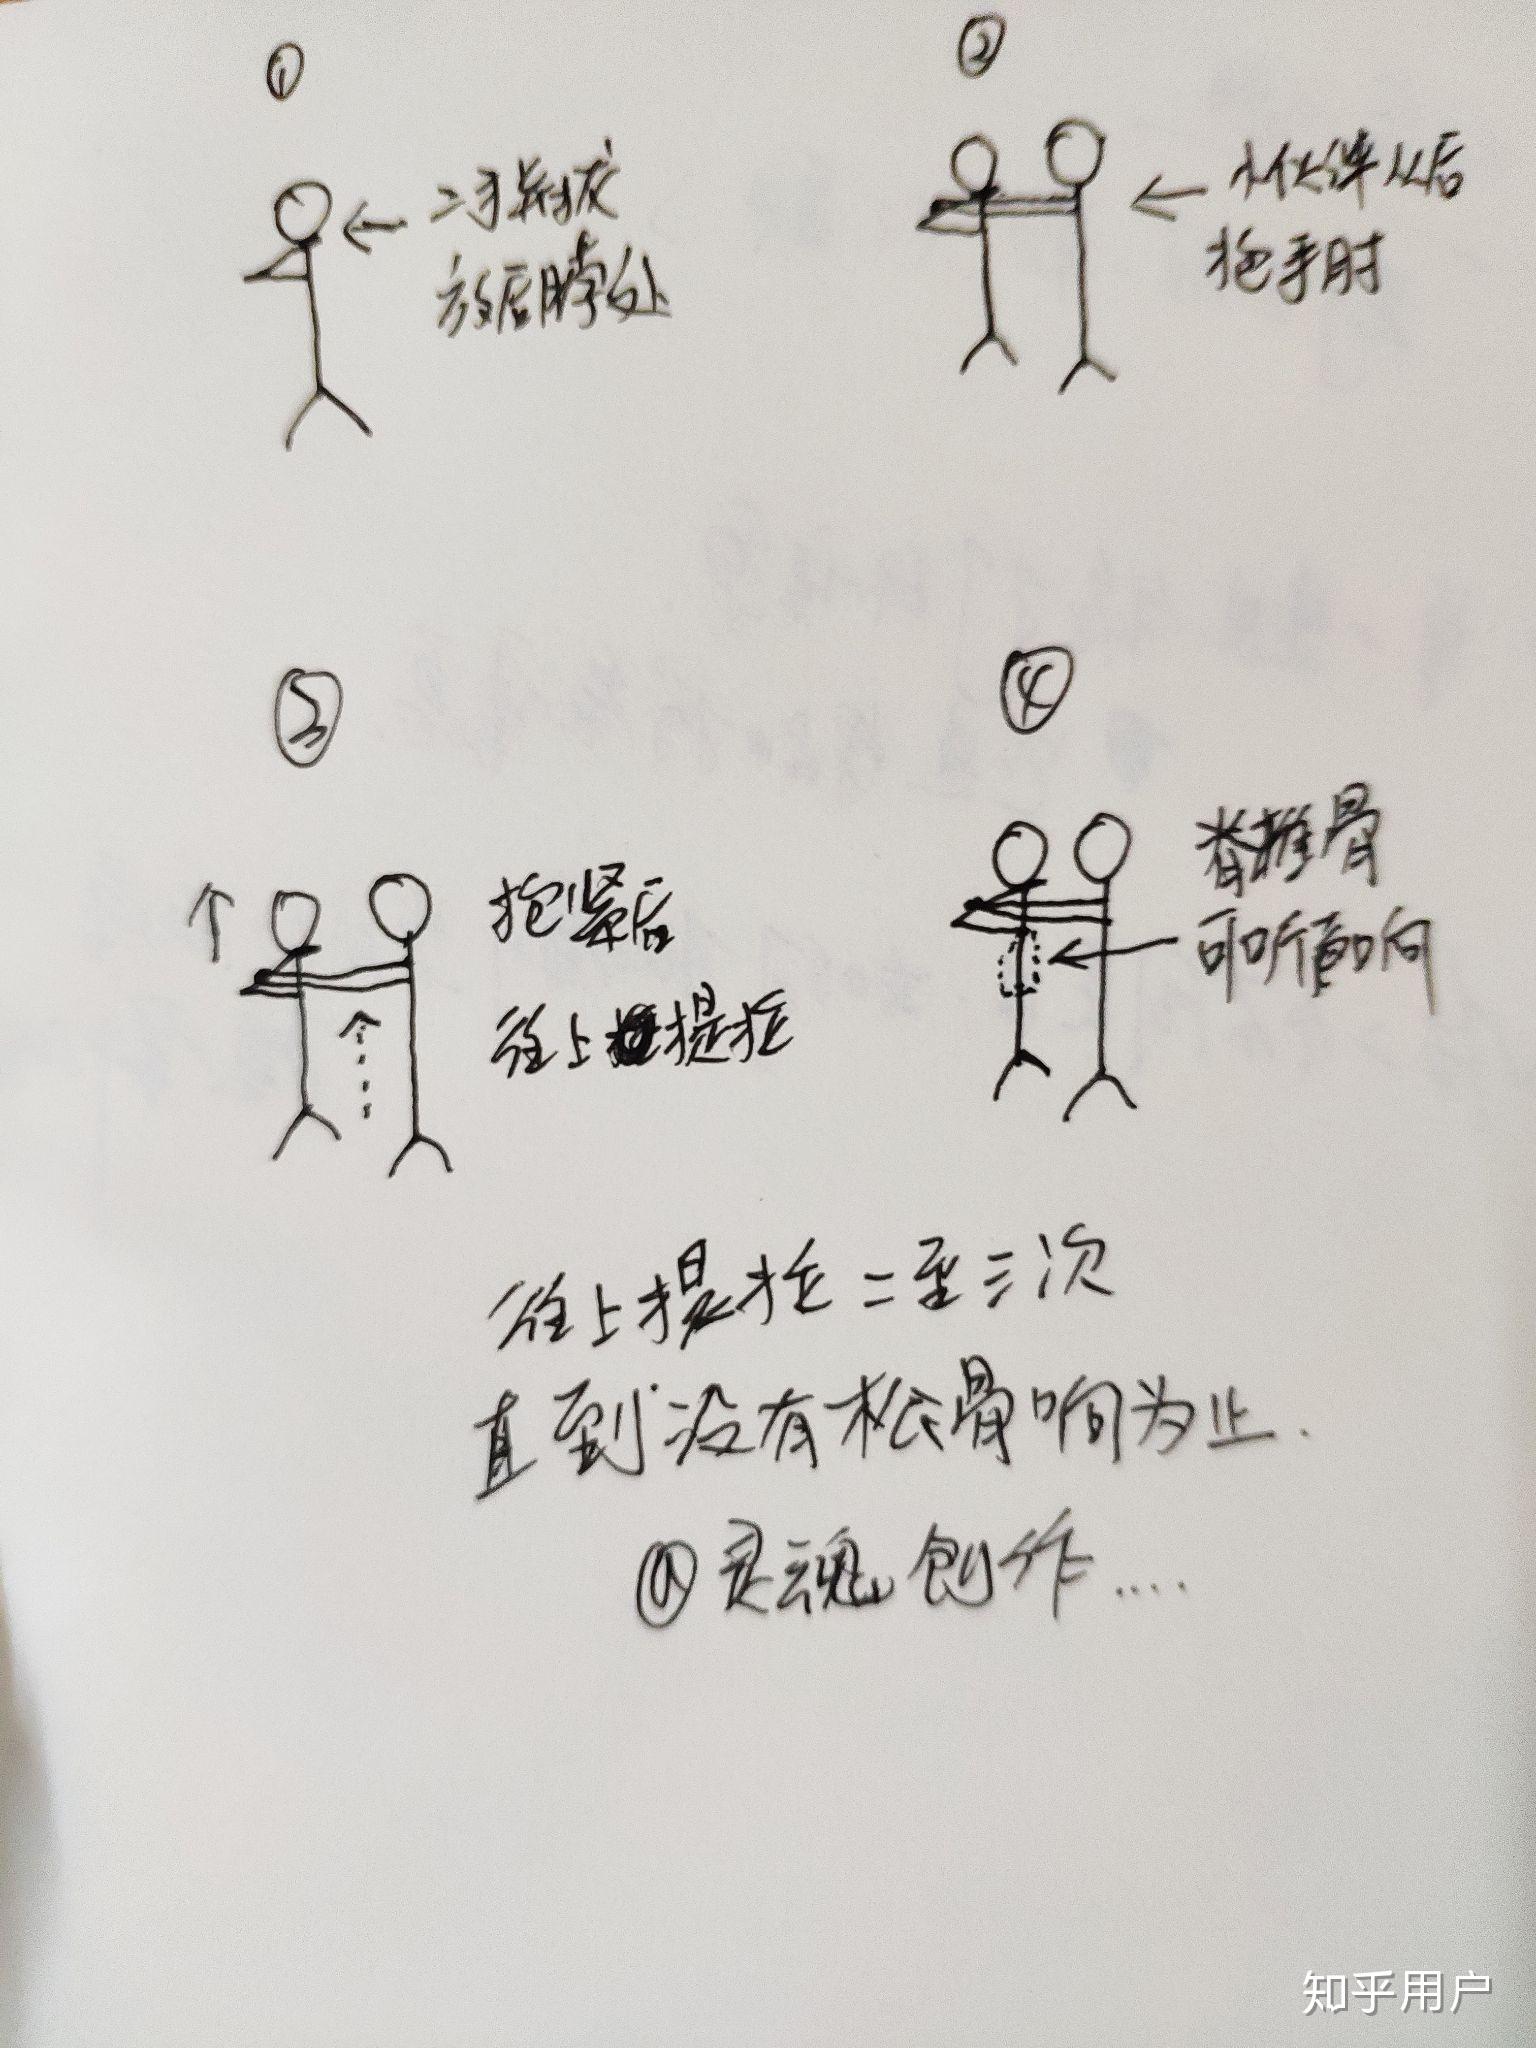 ①
二手
放后脖处
②
小伙伴从后
抱手肘
③
抱紧后
往上提拉
④
脊椎骨
可听育响
往上提拉二至三次
直到没有松骨响为止.
@灵魂创作....
知乎用户